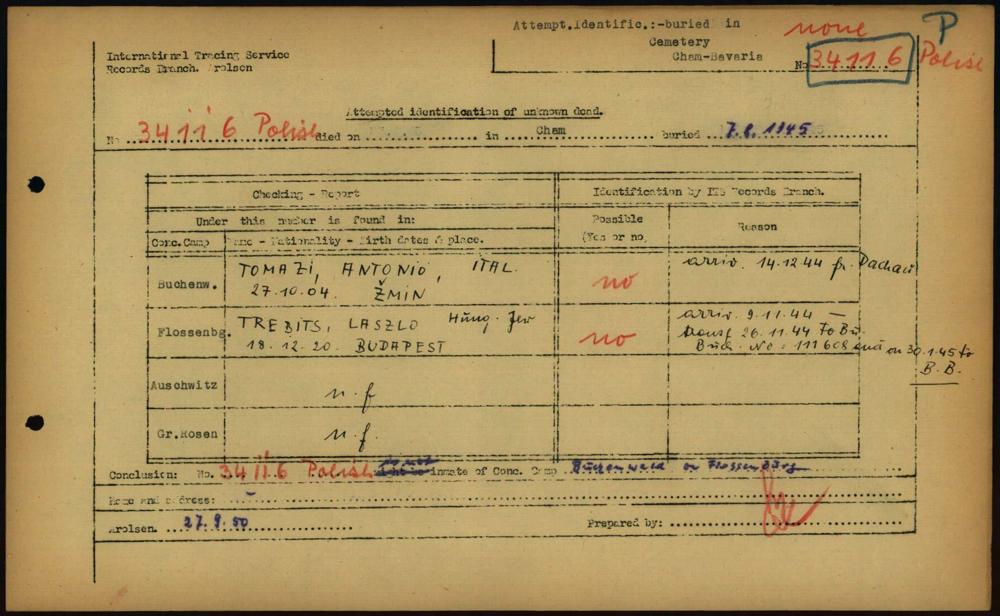 Attempt.Identific.:-buried in
Cemetery
Cham-Bavaria
none
P
No 34116 Polish
International Tracing Service
Records Branch. Arolsen
Attempted identification of unknown dead.
No 34116 Polish died on in Cham buried 7.8.1945
Checking - Report
Identification by ITS Records Branch.
Under this number is found in:
Possible
(Yes or no
Reason
Conc.Camp
Name - Nationality - Birth dates & place.
Buchenw.
TOMAZI, ANTONIO, ITAL.
27.10.04. ŽMIN
no
arriv. 14.12.44 fr. Dachau
Flossenbg.
TREBITS, LASZLO Hung. Jew
18.12.20. BUDAPEST
no
arriv. 9.11.44 —
transf 26.11.44 To Bu.
Buch. No: 111608 and on 30.1.45 to
B.B.
Auschwitz
n.f
Gr.Rosen
n.f.
Conclusion: No. 34116 Polish inmate of Conc. Camp Buchenwald or Flossenbürg
Name and address:
Arolsen. 27.9.50
Prepared by: